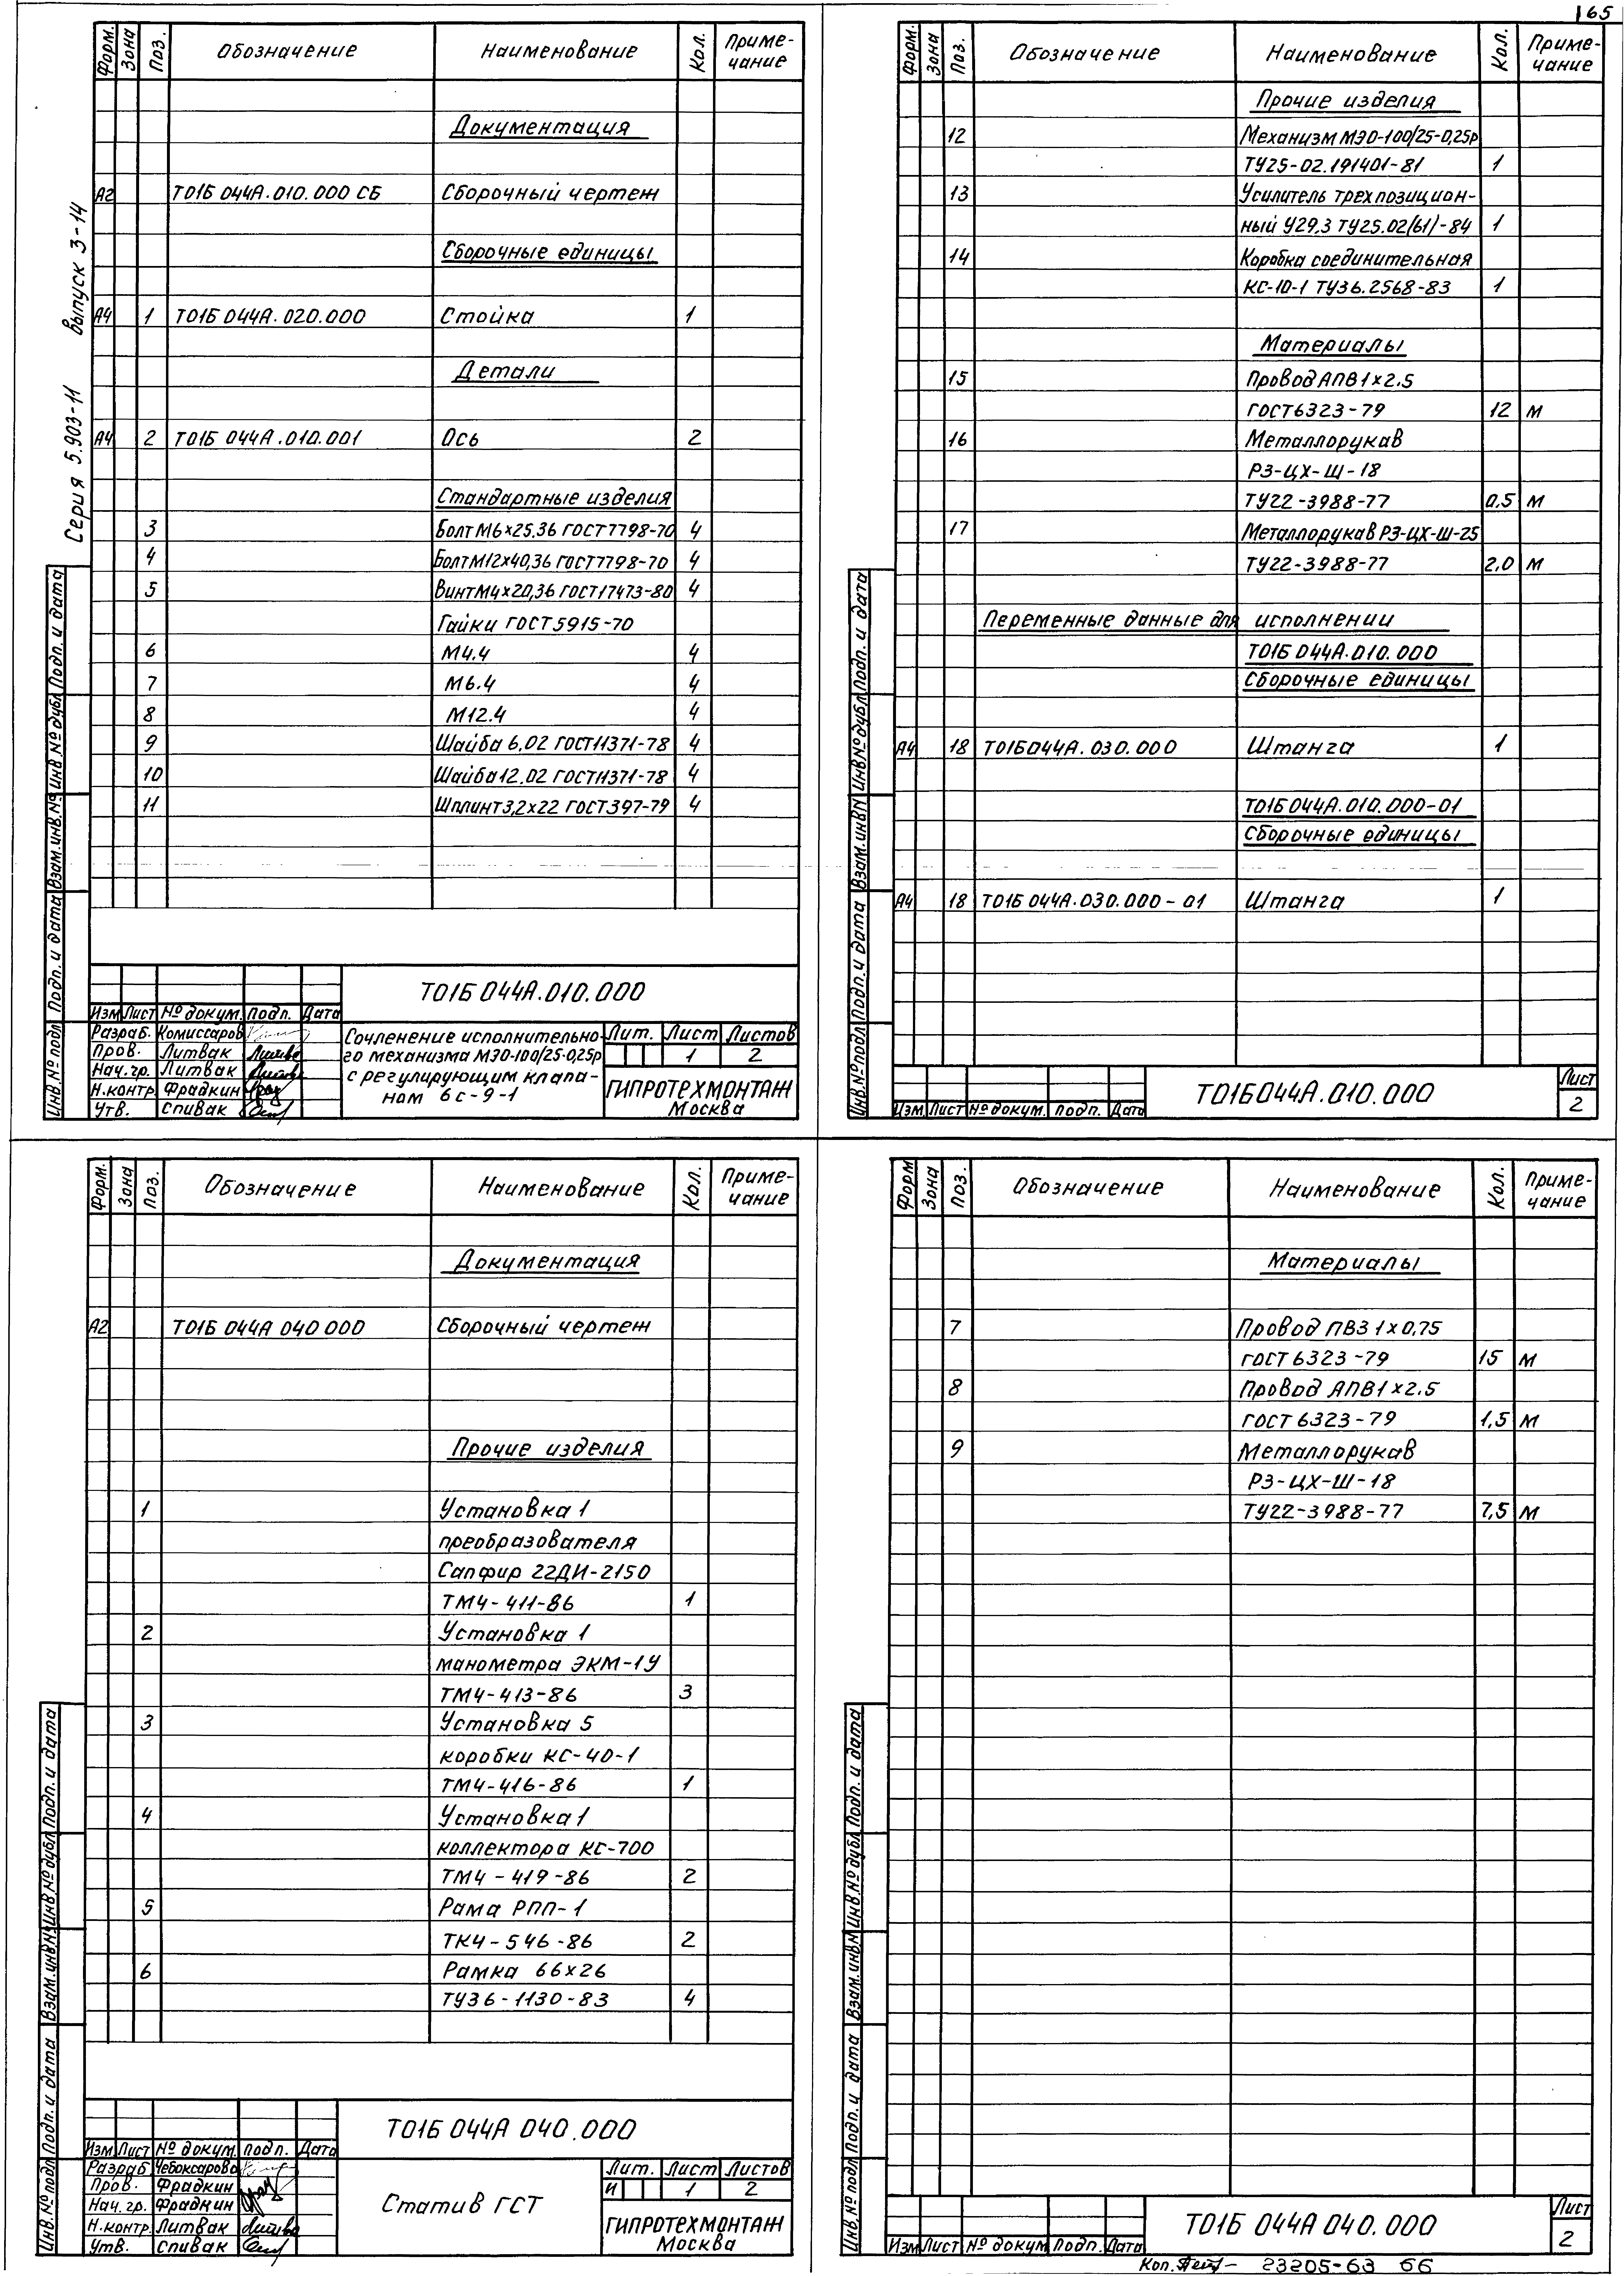 165
Серия 5.903-11 Выпуск 3-14
Форм. Зона Поз. Обозначение Наименование Кол. Приме-
чание
Документация
А2 Т01Б 044А.010.000 СБ Сборочный чертеж
Сборочные единицы
А4 1 Т01Б 044А.020.000 Стойка 1
Детали
А4 2 Т01Б 044А.010.001 Ось 2
Стандартные изделия
3 Болт М6×25.36 ГОСТ 7798-70 4
4 Болт М12×40,36 ГОСТ 7798-70 4
5 Винт М4×20,36 ГОСТ 17473-80 4
Гайки ГОСТ 5915-70
6 М4.4 4
7 М6.4 4
8 М12.4 4
9 Шайба 6.02 ГОСТ 11371-78 4
10 Шайба 12.02 ГОСТ 11371-78 4
11 Шплинт 3,2×22 ГОСТ 397-79 4
Инв.№ подл Подп. и дата Взам.инв.№ Инв.№ дубл Подп. и дата
Т01Б 044А.010.000
Изм Лист № докум. Подп. Дата
Разраб. Комиссаров
Пров. Литвак
Нач.гр. Литвак
Н.контр. Фрадкин
Утв. Спивак
Сочленение исполнительно-
го механизма МЭО-100/25-0,25р
с регулирующим клапа-
ном 6с-9-1
Лит. Лист Листов
1 2
ГИПРОТЕХМОНТАЖ
Москва
Форм. Зона Поз. Обозначение Наименование Кол. Приме-
чание
Прочие изделия
12 Механизм МЭО-100/25-0,25р
ТУ25-02.191401-81 1
13 Усилитель трехпозицион-
ный У29.3 ТУ25.02(61)-84 1
14 Коробка соединительная
КС-10-1 ТУ36.2568-83 1
Материалы
15 Провод АПВ 1×2.5
ГОСТ 6323-79 12 м
16 Металлорукав
РЗ-ЦХ-Ш-18
ТУ22-3988-77 0,5 м
17 Металлорукав РЗ-ЦХ-Ш-25
ТУ22-3988-77 2,0 м
Переменные данные для исполнении
Т01Б 044А.010.000
Сборочные единицы
А4 18 Т01Б044А.030.000 Штанга 1
Т01Б044А.010.000-01
Сборочные единицы
А4 18 Т01Б 044А.030.000-01 Штанга 1
Инв.№ подл Подп. и дата Взам инв№ Инв№ дубл Подп. и дата
Изм Лист № докум. Подп. Дата
Т01Б044А.010.000
Лист
2
Форм. Зона Поз. Обозначение Наименование Кол. Приме-
чание
Документация
А2 Т01Б 044А 040 000 Сборочный чертеж
Прочие изделия
1 Установка 1
преобразователя
Сапфир 22ДИ-2150
ТМ4-411-86 1
2 Установка 1
манометра ЭКМ-1У
ТМ4-413-86 3
3 Установка 5
коробки КС-40-1
ТМ4-416-86 1
4 Установка 1
коллектора КС-700
ТМ4-419-86 2
5 Рама РПП-1
ТК4-546-86 2
6 Рамка 66×26
ТУ36-1130-83 4
Инв.№ подл Подп. и дата Взам.инв№ Инв.№ дубл Подп. и дата
Т01Б 044А 040.000
Изм Лист № докум. подп. Дата
Разраб Чебоксарова
Пров. Фрадкин
Нач.гр. Фрадкин
Н.контр. Литвак
Утв. Спивак
Статив ГСТ
Лит. Лист Листов
И 1 2
ГИПРОТЕХМОНТАЖ
Москва
Форм Зона Поз. Обозначение Наименование Кол. Приме-
чание
Материалы
7 Провод ПВ3 1×0,75
ГОСТ 6323-79 15 м
8 Провод АПВ 1×2.5
ГОСТ 6323-79 1,5 м
9 Металлорукав
РЗ-ЦХ-Ш-18
ТУ22-3988-77 7,5 м
Инв.№ подл Подп. и дата Взам.инв№ Инв.№ дубл Подп. и дата
Изм Лист № докум Подп. Дата
Т01Б 044А 040.000
Лист
2
Коп. 23205-63 66